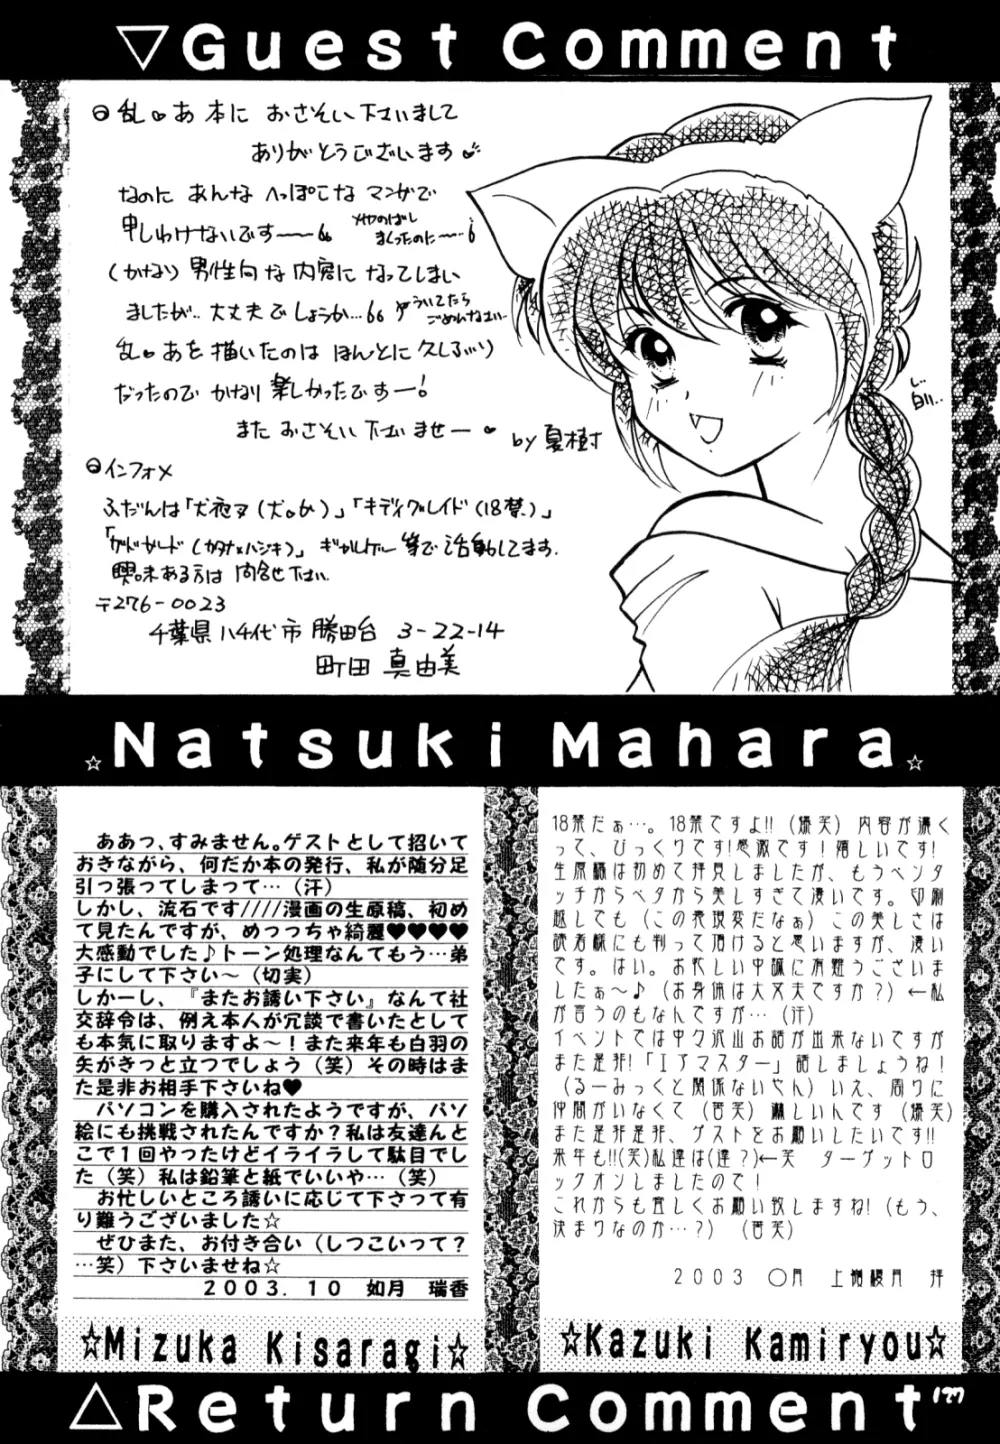 ▽Guest Comment
乱♥あ 本に おさそい下さいまして
ありがとうございます
なのに あんな へっぽこな マンガで
申しわけないです〜〜
〆切のばし
まくったのに〜…
(かなり) 男性向な内容に なってしまい
ましたが… 大丈夫でしょうか…
ういてたら
ごめんなさい…
乱♥あを 描いたのは ほんとに 久しぶり
だったので かなり 楽しかったですー!
また おさそい 下さいませー ♥
by 夏樹
白い…
インフォメ
ふだんは「犬夜叉(犬×か)」「キディグレイド(18禁)」
ギャルゲー等で活動してます.
興味ある方は 問合せ下さい.
Natsuki Mahara
ああっ、すみません。ゲストとして招いて
おきながら、何だか本の発行、私が随分足
引っ張ってしまって…(汗)
しかし、流石です////漫画の生原稿、初め
て見たんですが、めっつちゃ綺麗♥♥♥♥
大感動でした♪トーン処理なんてもう…弟
子にして下さい〜(切実)
しかーし、『またお誘い下さい』なんて社
交辞令は、例え本人が冗談で書いたとして
も本気に取りますよ〜！また来年も白羽の
矢がきっと立つでしょう(笑)その時はま
た是非お相手下さいね♥
パソコンを購入されたようですが、パソ
絵にも挑戦されたんですか？私は友達んと
こで１回やったけどイライラして駄目でし
た(笑)私は鉛筆と紙でいいや…(笑)
お忙しいところ誘いに応じて下さって有
り難うございました☆
ぜひまた、お付き合い(しつこいって？
…笑)下さいませね☆
２００３．１０　如月　瑞香
18禁だぁ…。18禁ですよ!!(爆笑) 内容が濃く
って、びっくりです!感激です！嬉しいです!
生原稿は初めて拝見しましたが、もうペンタ
ッチからベタから美しすぎて凄いです。印刷
越しても(この表現変だなぁ)この美しさは
読者様にも判って頂けると思いますが、凄い
です。はい。お忙しい中誠に有難うございま
したぁ〜♪(お身体は大丈夫ですか？)←私
が言うのもなんですが…(汗)
イベントでは中々沢山お話が出来ないですが
また是非!「エアマスター」話しましょうね！
(るーみっくと関係ないやん)いえ、周りに
仲間がいなくて(苦笑)淋しいんです(爆笑)
また是非是非、ゲストをお願いしたいです!!
来年も!!(笑)私達は(達？)←笑　ターゲットロ
ックオンしましたので！
これからも宜しくお願い致しますね!(もう、
決まりなのか…？)(苦笑)
☆Mizuka Kisaragi☆
☆Kazuki Kamiryou☆
△Return Comment
177